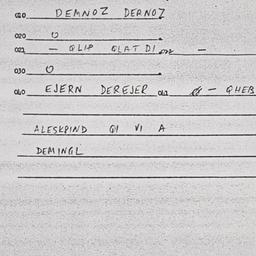 010 DEMNOZ DERNOZ
020 O
021 — GLIP GLAT DI 022 —
030 O
040 EJERN DEREJER 041 — GHEB
ALESKPIND GI VI A
DEMINGL